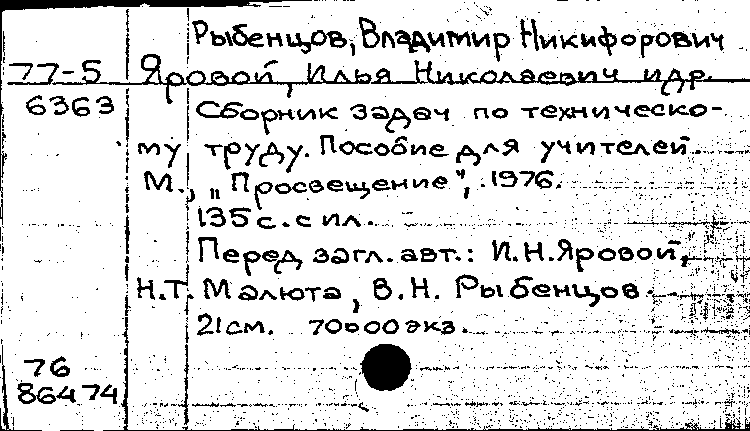 Рыбенцов, Владимир Никифорович
77-5 Яровой, Илья Николаевич и др.
6363 Сборник задач по техническо-
му труду. Пособие для учителей.
М., „Просвещение", 1976.
135 с. с ил.
Перед загл. авт.: И.Н.Яровой,
Н.Т. Малюта, В.Н. Рыбенцов.
21 см. 70000 экз.
76
86474